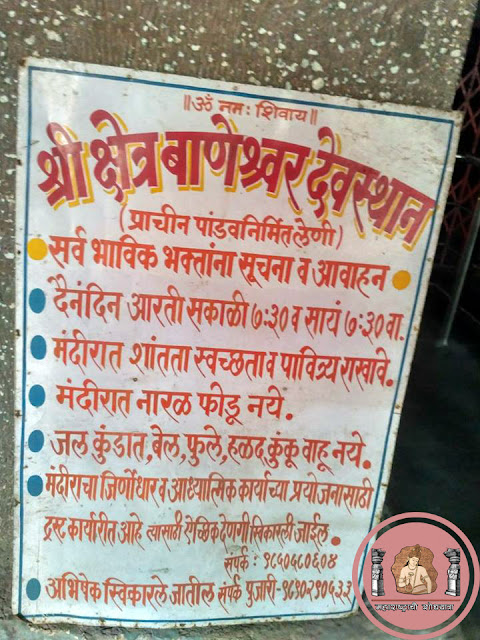 ॥ॐ नमः शिवाय॥
श्री क्षेत्र बाणेश्वर देवस्थान
(प्राचीन पांडवनिर्मित लेणी)
सर्व भाविक भक्तांना सूचना व आवाहन
दैनंदिन आरती सकाळी ७:३० व सायं ७:३० वा.
मंदीरात शांतता स्वच्छता व पावित्र्य राखावे.
मंदीरात नारळ फोडू नये.
जल कुंडात, बेल, फुले, हळद, कुंकू वाहू नये.
मंदीराचा जिर्णोधार व आध्यात्मिक कार्याच्या प्रयोजनासाठी
ट्रस्ट कार्यारीत आहे त्यासाठी ऐच्छिक देणगी स्विकारली जाईल.
संपर्क : ९८५०५८०६०४
अभिषेक स्विकारले जातील संपर्क पुजारी-९८९०२९०५३३
महाराष्ट्राची शोधयात्रा